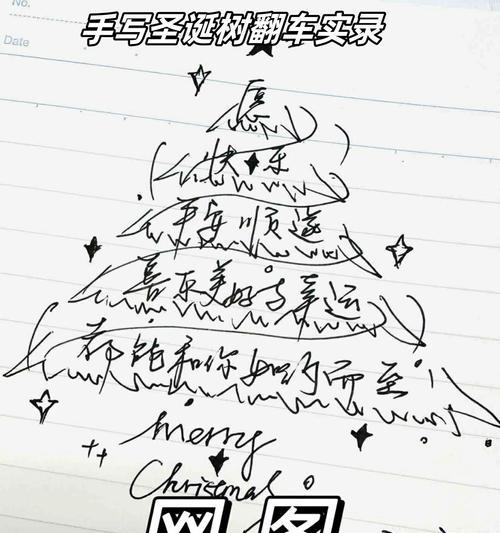 No.
手写圣诞树翻车实录
Date
愿
快乐
平安顺遂
喜乐美好与幸运
都能和你如约而至
merry
Christmal
网图